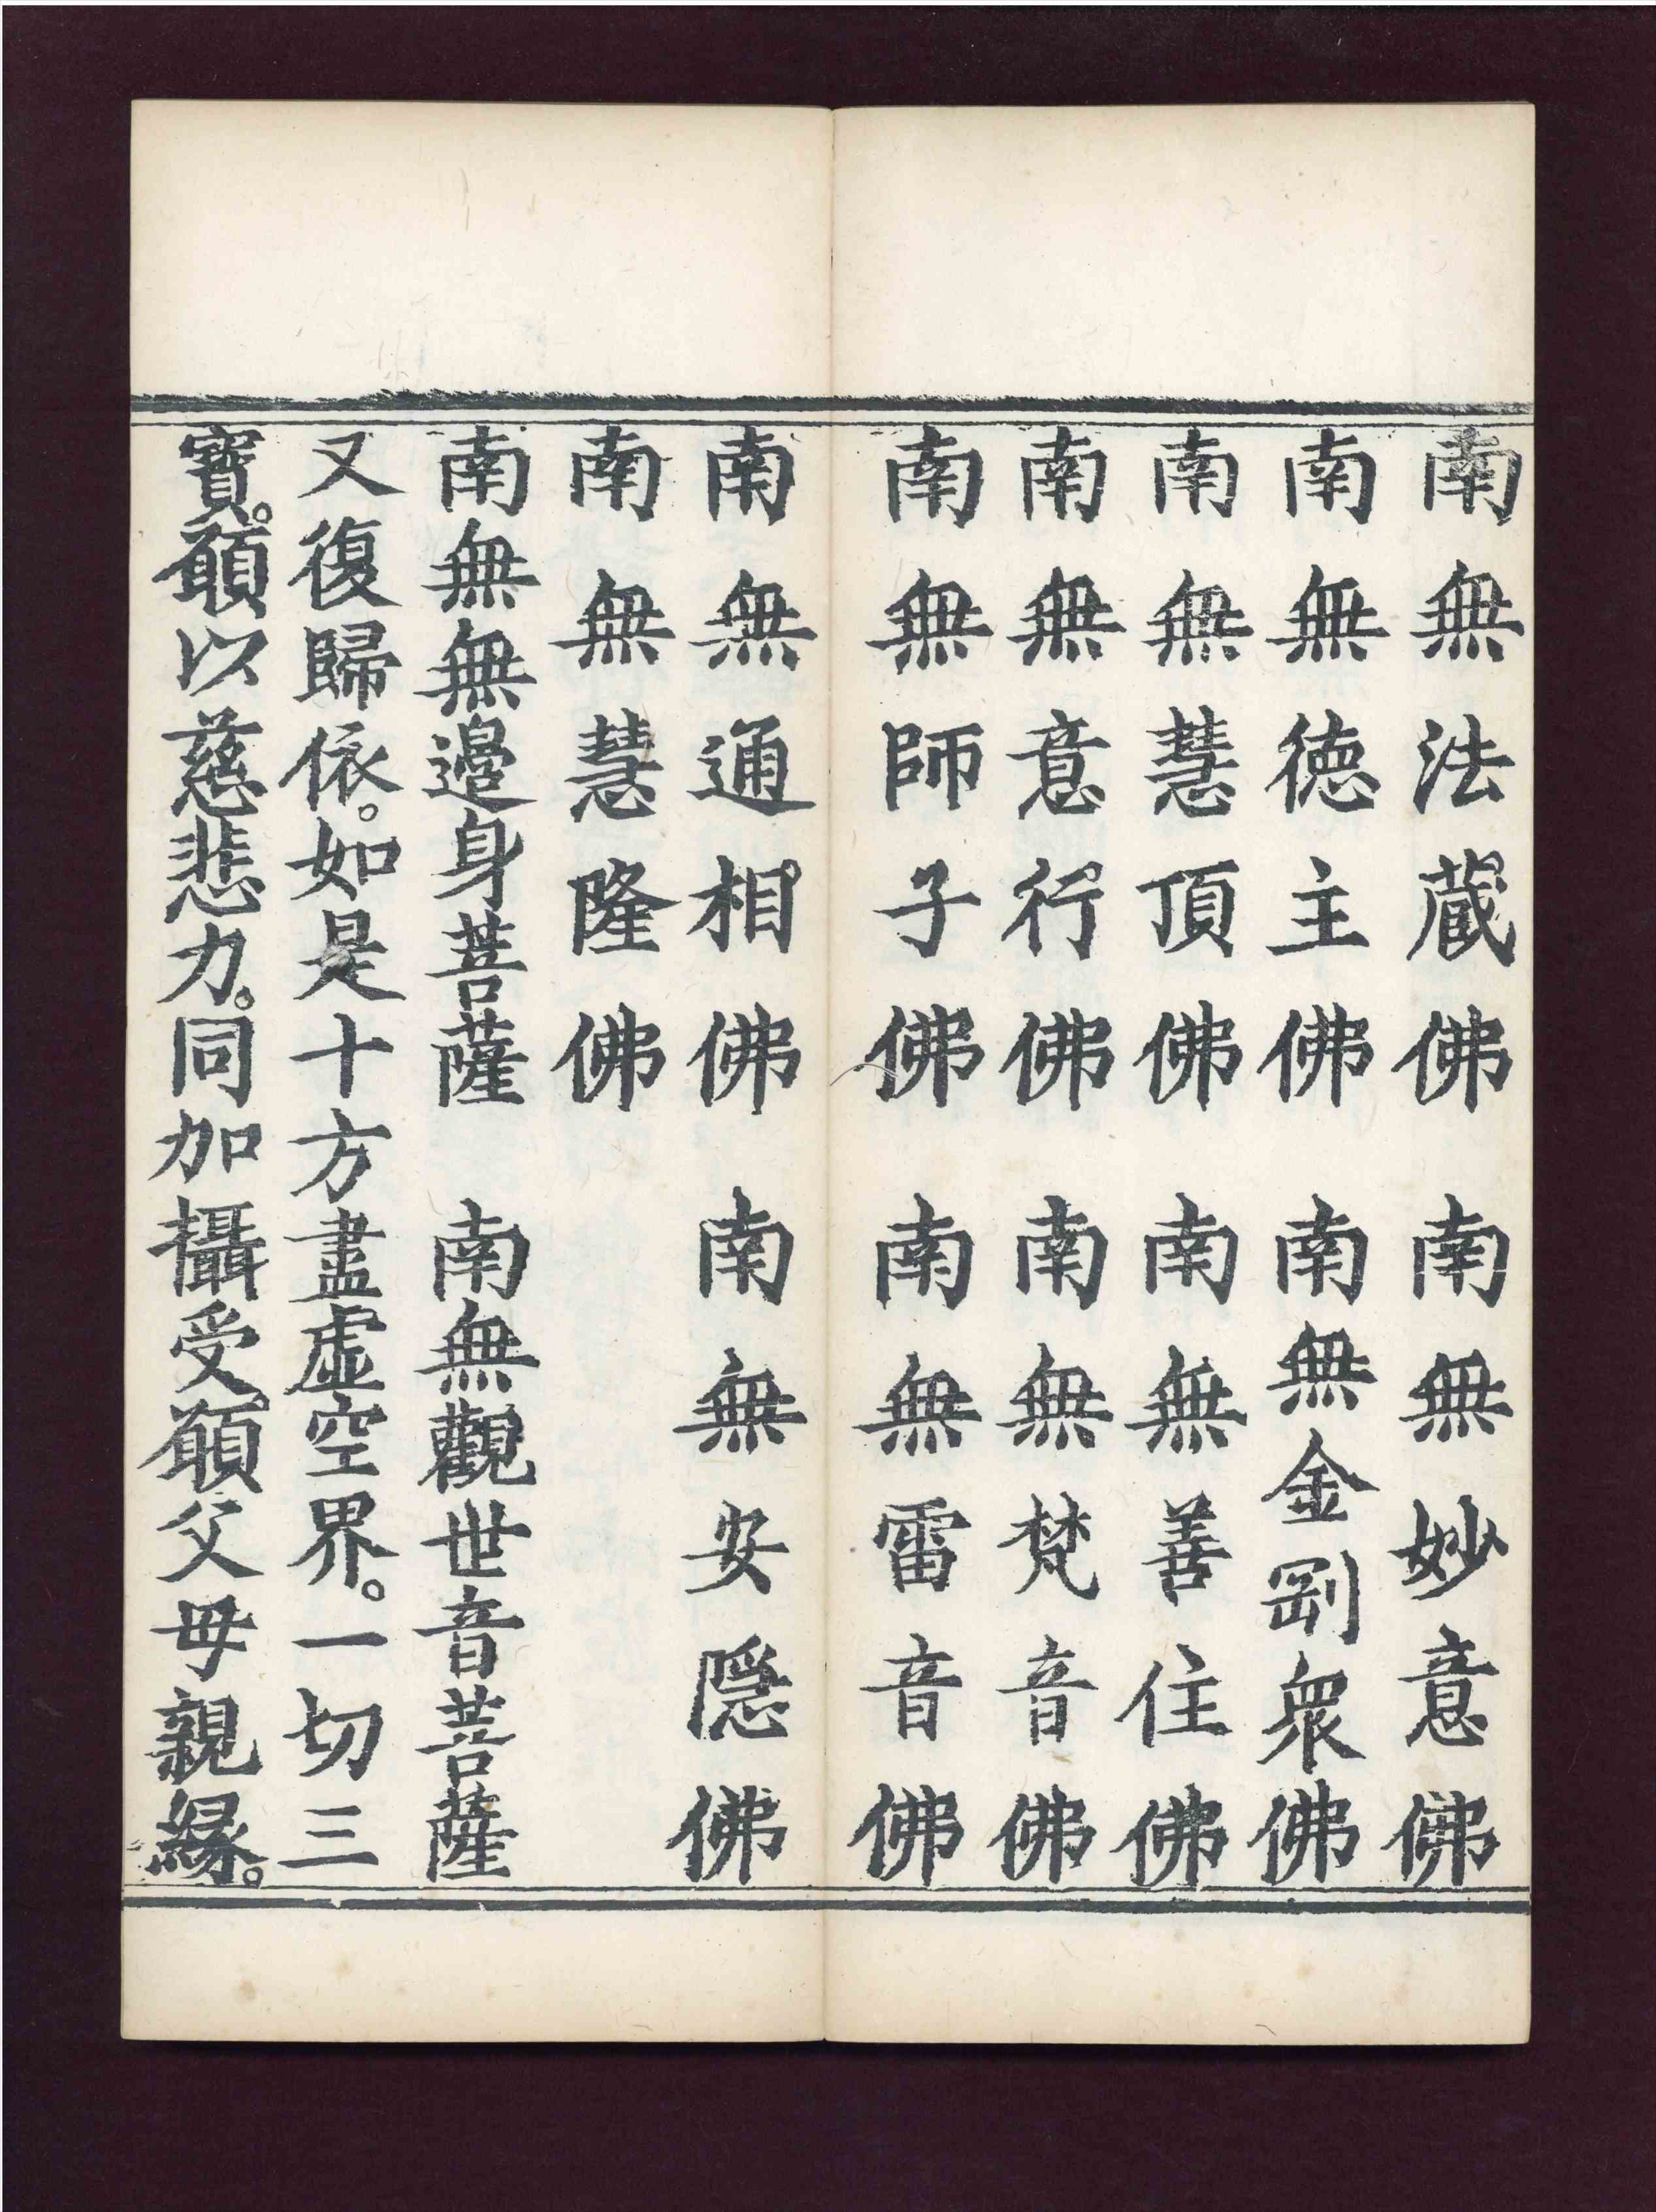 南無法藏佛　南無妙意佛
南無德主佛　南無金剛衆佛
南無慧頂佛　南無善住佛
南無意行佛　南無梵音佛
南無師子佛　南無雷音佛
南無通相佛　南無安隱佛
南無慧隆佛
南無無邊身菩薩　南無觀世音菩薩
又復歸依。如是十方盡虛空界。一切三
寶。願以慈悲力。同加攝受。願父母親緣。